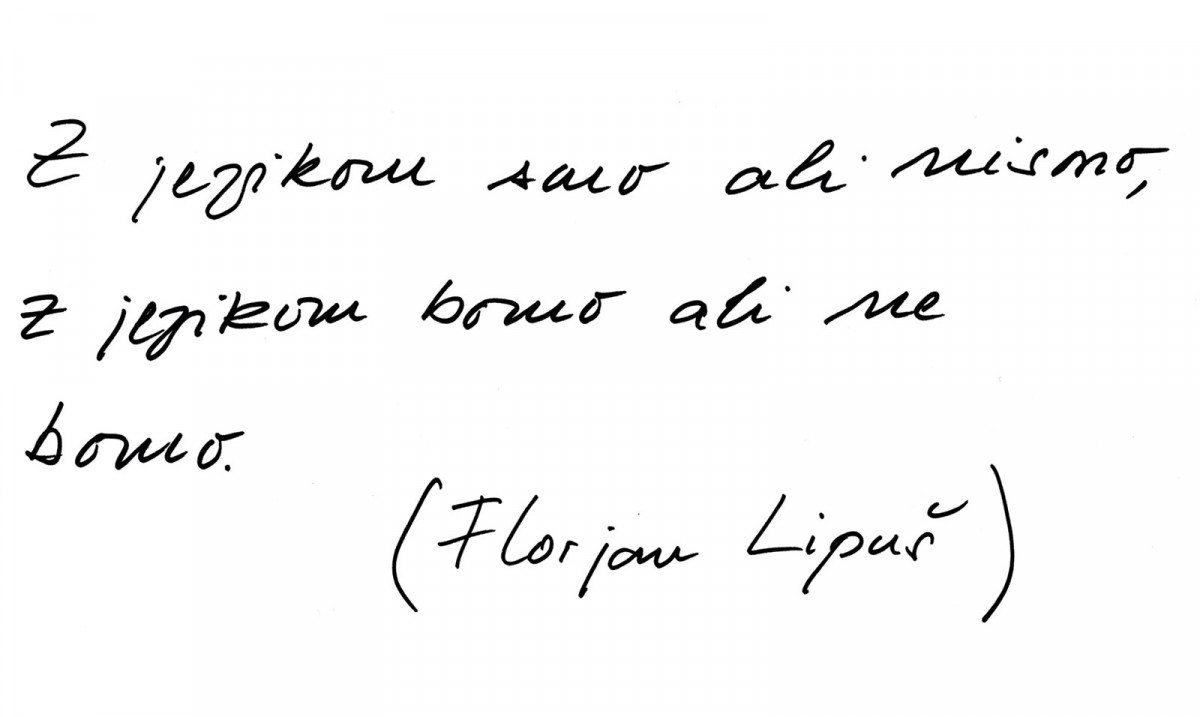 Z jezikom smo ali nismo,
z jezikom bomo ali ne
bomo.
(Florjan Lipuš)